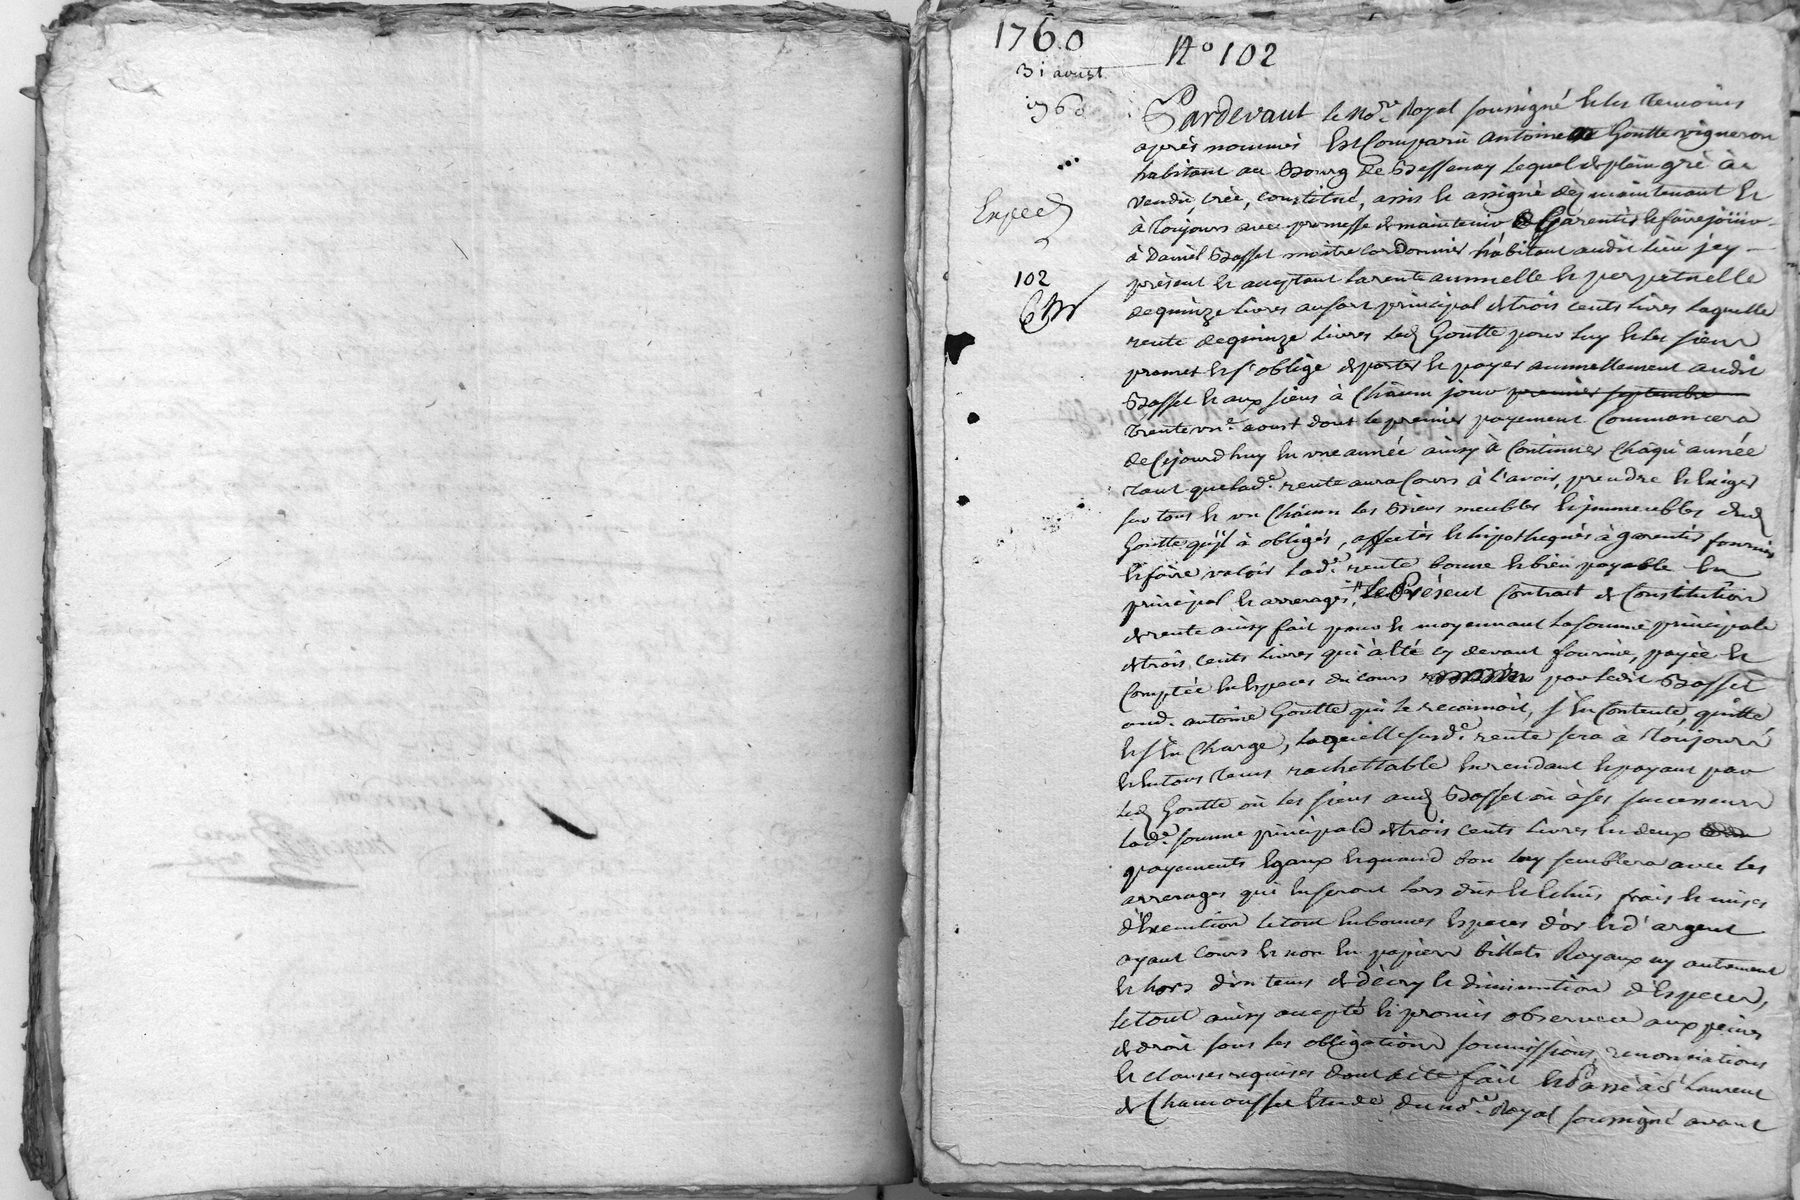 1760
N° 102
31 aoust
1760
Exped
102
Pardevant le No.re Royal soussigné & les temoins
après nommés est Comparu antoine Goutte vigneron
habitant au Bourg de Bessenay lequel de plein gré à
vendu, créé, constitué, assis & assigné dez maintenant &
à toujours avec promesse de maintenir & Garentir & faire jouir
à Daniel Basset maitre Cordonnier habitant audit lieu jcy
présent & acceptant la rente annuelle & perpetuelle
de quinze livres au sort principal de trois cents livres laquelle
rente de quinze livres led Goutte pour luy & les siens
promet & s'oblige de porter & payer annuellement audit
Basset & aux siens à Chacun jour premier septembre
trente un.e aoust dont le premier payement Commancera
de Cejourdhuy en une année ainsy à Continuer chaque année
tant que lad.e rente aura Cours à l'avoir, prendre & Exiger
sur tous & un Chacun les Biens meubles & jmmeubles dud
Goutte qu'jl à obligés, affectés & hipothequés à garentir fournir
& faire valoir lad.e rente bonne & bien payable En
principal & arrerages, le Présent Contrat de Constitution
de rente ainsy fait pour & moyennant la somme principale
de trois cents livres qui à Eté cy devant fournie, payée &
Comptée En Especes du cours par ledit Basset
aud. antoine Goutte qui le reconnoit, s'En Contente, quitte
& s'En Charge, laquelle susd.e rente sera a toujours
& En tous tems rachettable En rendant & payant par
led Goutte ou les siens aud Basset ou à ses successeurs
lad.e somme principale de trois cents livres En deux
payements Egaux & quand bon luy semblera avec les
arrerages qui En seront lors dûs & Echus frais & mises
d'Execution le tout En bonnes Especes d'or & d'argent
ayant cours & non En papiers billets Royaux ny autrement
& hors d'un tems de décry & diminution d'Especes,
le tout ainsy accepté & promis observer aux peines
de droit sous les obligations soumissions, renonciations
& clauses requises dont acte fait & Passé à S.t Laurent
de Chamousset Etude du no.re Royal soussigné avant